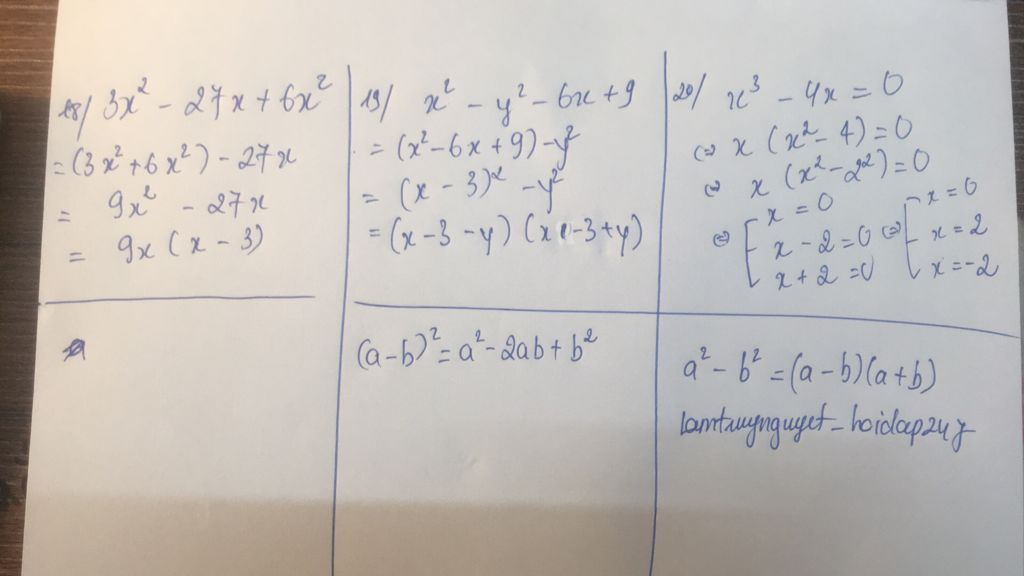 18/ 3x² - 27x + 6x²
= (3x² + 6x²) - 27x
= 9x² - 27x
= 9x (x - 3)
19/ x² - y² - 6x + 9
= (x² - 6x + 9) - y²
= (x - 3)² - y²
= (x - 3 - y) (x - 3 + y)
(a - b)² = a² - 2ab + b²
20/ x³ - 4x = 0
⇔ x (x² - 4) = 0
⇔ x (x² - 2²) = 0
⇔ [ x = 0 ⇔ [ x = 0
x - 2 = 0 x = 2
x + 2 = 0 x = -2
a² - b² = (a - b)(a + b)
lamtruynguyet_hoidap247